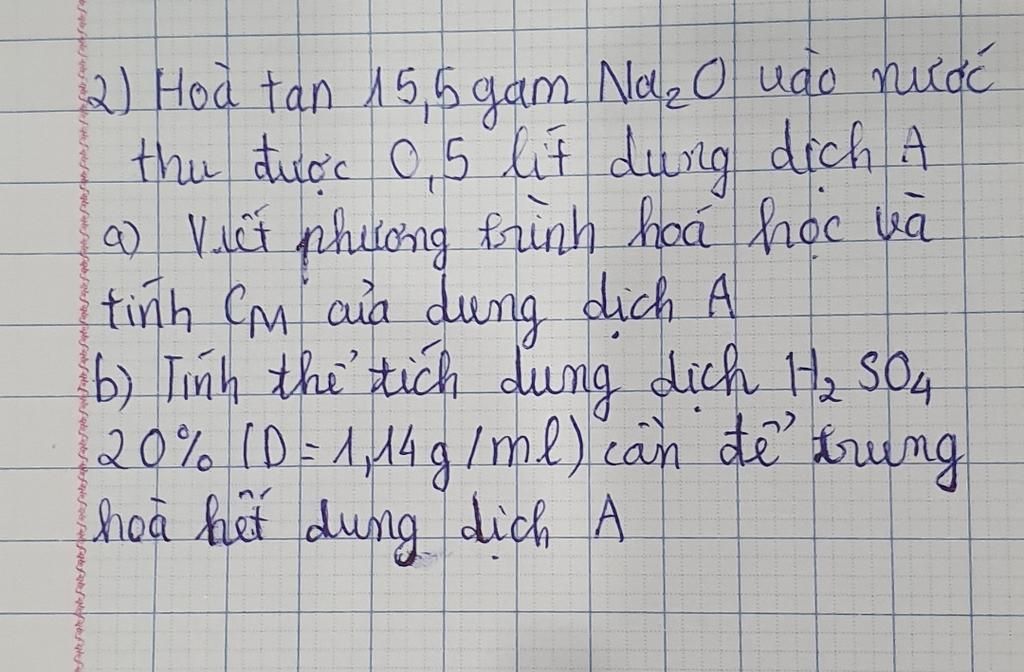 2) Hoà tan 15,5 gam Na₂O vào nước
thu được 0,5 lít dung dịch A
a) Viết phương trình hoá học và
tính CM của dung dịch A
b) Tính thể tích dung dịch H₂SO₄
20% (D = 1,14g/ml) cần để trung
hoà hết dung dịch A